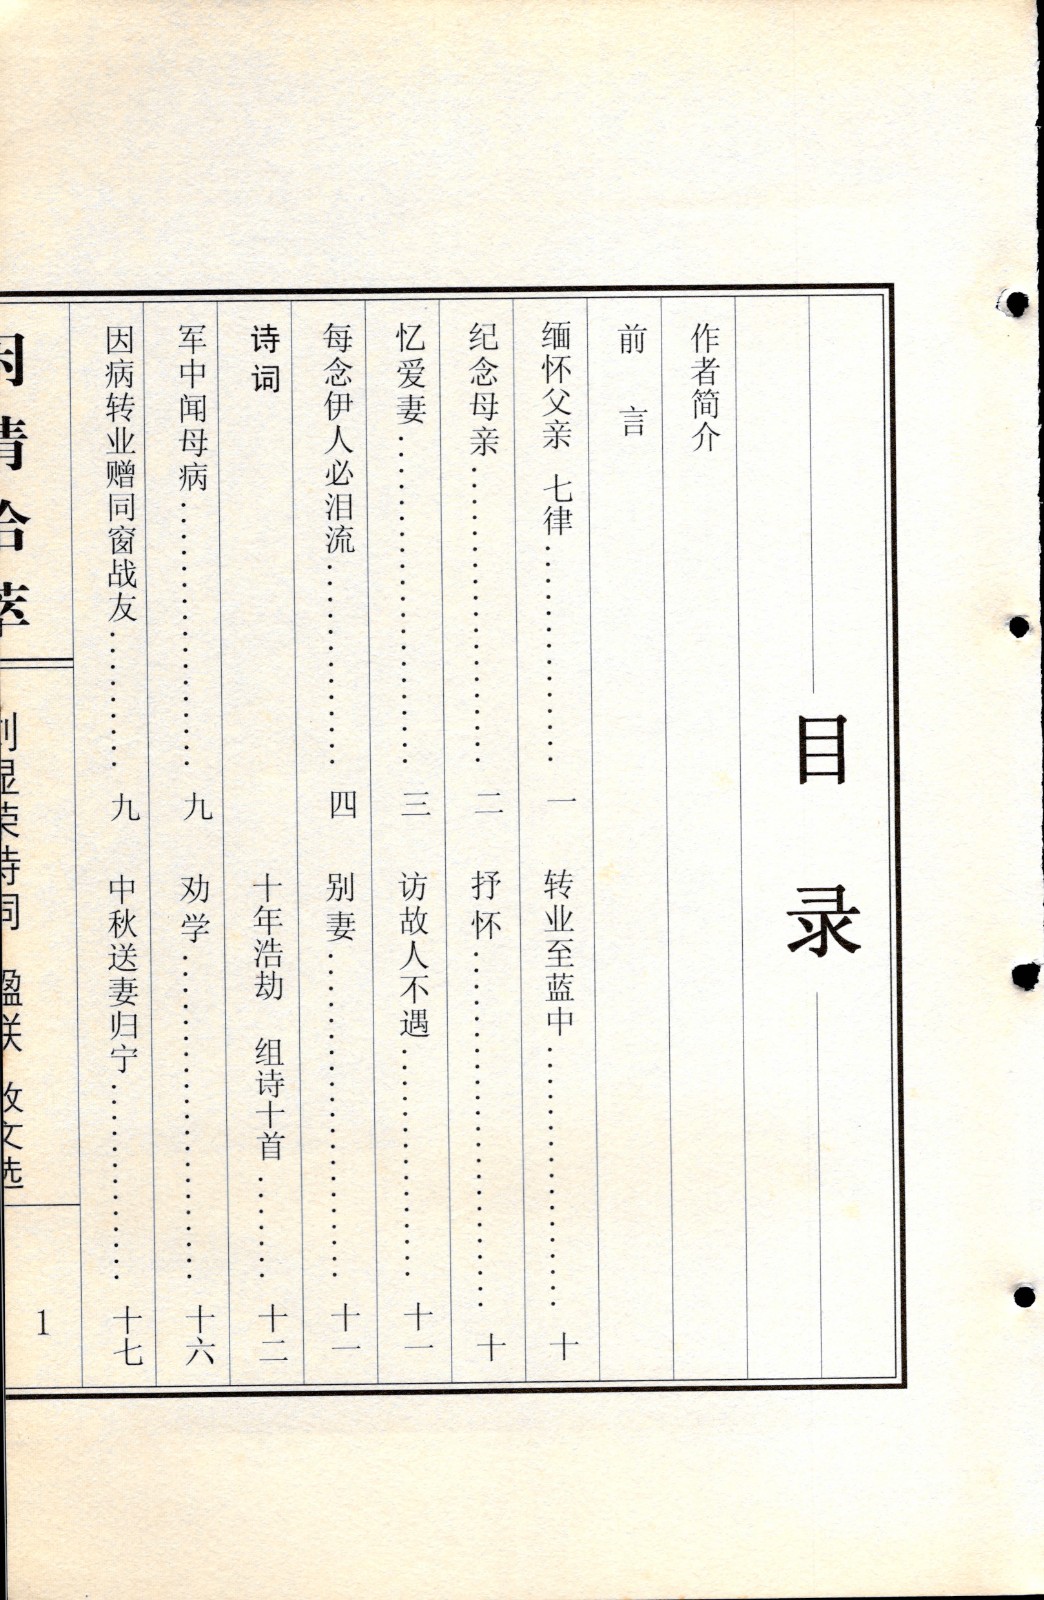 目录
作者简介
前言
缅怀父亲 七律……………一
纪念母亲……………二
忆爱妻……………三
每念伊人必泪流……………四
诗词
军中闻母病……………九
因病转业赠同窗战友……………九
转业至蓝中……………十
抒怀……………十
访故人不遇……………十一
别妻……………十一
十年浩劫 组诗十首……………十二
劝学……………十六
中秋送妻归宁……………十七
情拾萃
显荣诗词 楹联 散文选
1